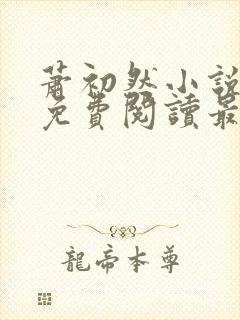 蕭初然小說
免費閱讀最
龍帝本尊